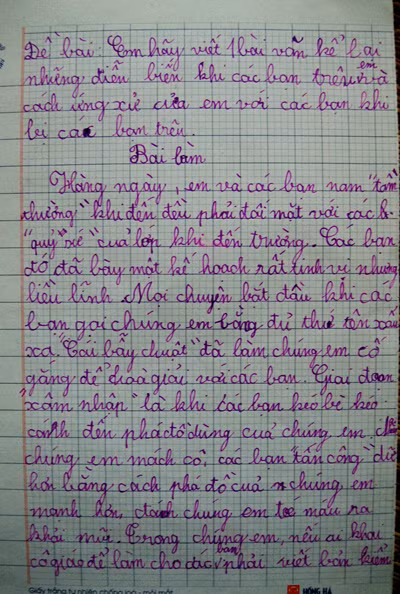 Đề bài: Em hãy viết 1 bài văn kể lại
những diễn biến khi các bạn trêu em và
cách ứng xử của em với các bạn khi
bị các bạn trêu.
Bài làm
Hàng ngày, em và các bạn nam "tầm
thường" khi đến đều phải đối mặt với các
"quỷ" xé "của lớp khi đến trường. Các bạn
đó đã bày một kế hoạch rất tinh vi nhưng
liều lĩnh. Mọi chuyện bắt đầu khi các
bạn gọi chúng em bằng đủ thứ tên xấu
xa. "Cái bẫy chuột" đã làm chúng em cố
gắng để hoà giải với các bạn. Giai đoạn
"xâm nhập" là khi các bạn kéo bè kéo
cánh đến phá đồ dùng của chúng em
chúng em mách cô, các bạn "tấn công" dữ
hơn bằng cách phá đồ của chúng em
mạnh hơn, đánh chúng em toé máu ra
khỏi mũi. Trong chúng em, nếu ai khai
cô giáo để làm cho các bạn phải viết bản kiểm
Giấy trắng tự nhiên chống loá - mỏi mắt
HỒNG HÀ